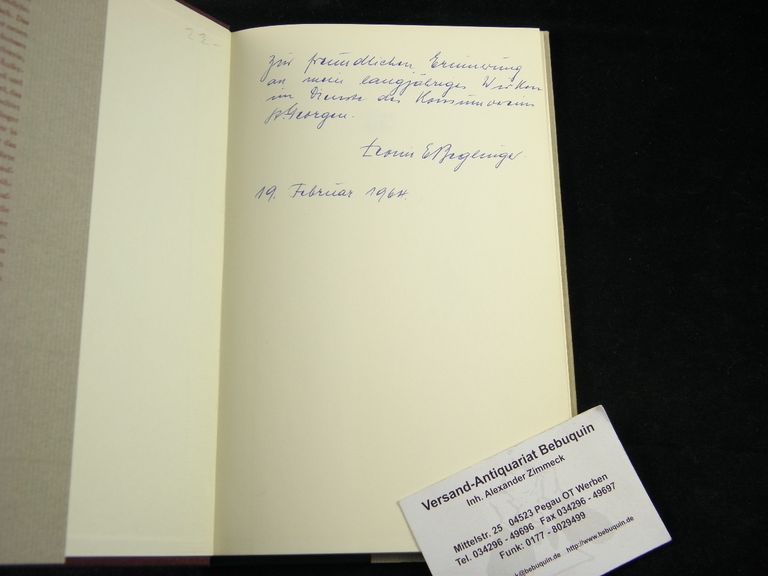 22.-
Zur freundlichen Erinnerung
an mein langjähriges Wirken
im Dienste des Konsumverein
St. Georgen.
E. Beglinger
19. Februar 1964
Versand-Antiquariat Bebuquin
Inh. Alexander Zimmeck
Mittelstr. 25 04523 Pegau OT Werben
Tel. 034296 - 49696 Fax 034296 - 49697
Funk: 0177 - 8029499
k@bebuquin.de http://www.bebuquin.de